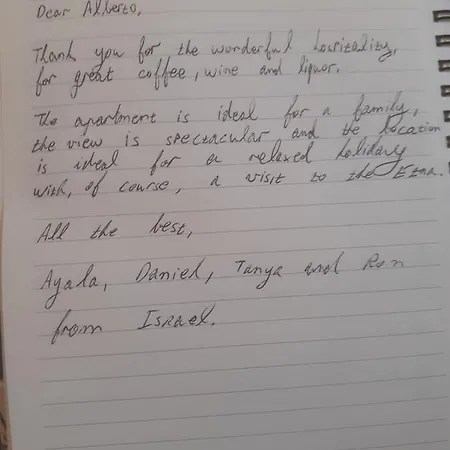 Dear Alberto,
Thank you for the wonderful hosritality,
for great coffee, wine and liquor.
The apartment is ideal for a family,
the view is spectacular and the location
is ideal for a relaxed holiday
with, of course, a visit to the Etna.
All the best,
Ayala, Daniel, Tanya and Ron
from Israel.